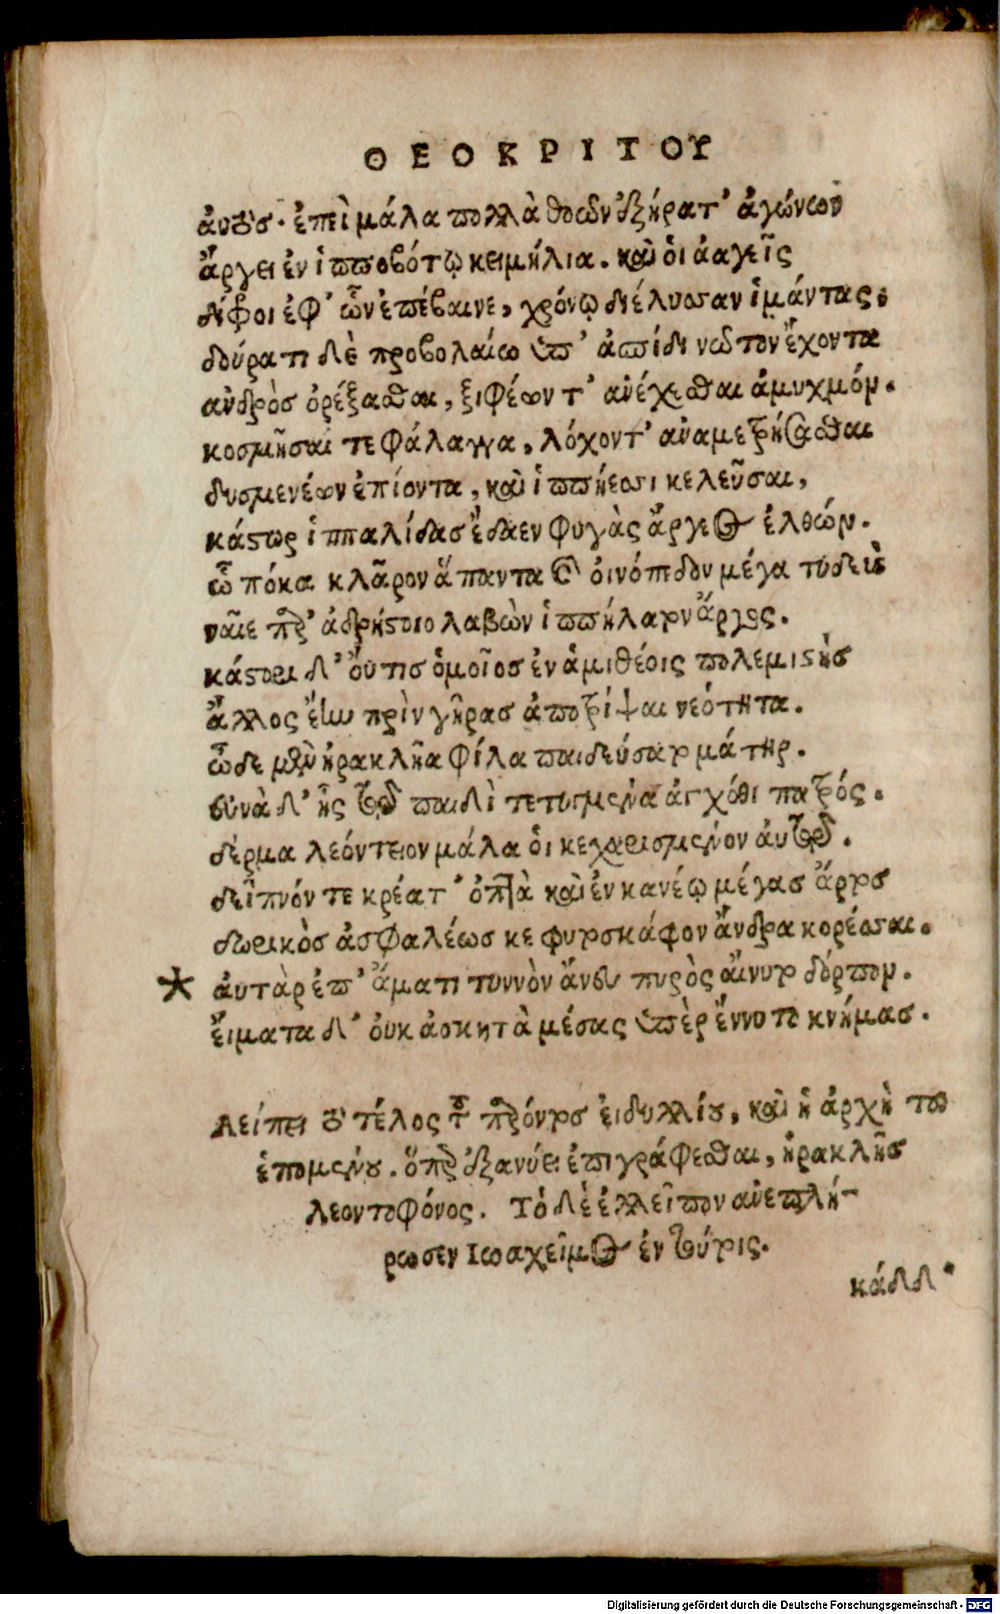 ΘΕΟΚΡΙΤΟΥ
ἀυτός· ἐπεὶ μάλα πολλὰ θοῶν ἐξήρατ' ἀγώνων
ἄργει ἐν ἱπποβότῳ κειμήλια. καὶ ὁι ἀαγεῖς
δίφροι ἐφ' ὧν ἐπέβαινε, χρόνῳ διέλυσαν ἱμάντας.
δούρατι δὲ προβολαίω ὑπ' ἀσπίδι νῶτον ἔχοντα
ἀνδρὸς ὀρέξασθαι, ξιφέων τ' ἀνέχεσθαι ἀμυχμόν.
κοσμῆσαί τε φάλαγγα, λόχοντ' ἀναμετρήσασθαι
δυσμενέων ἐπίοντα, καὶ ἱππήεσσι κελεῦσαι,
κάστωρ ἱππαλίδας ἔδαεν φυγὰς ἄργεος ἐλθών.
ὧ πόκα κλᾶρον ἅπαντα καὶ οἰνόπεδον μέγα τυδεὺς
ναῖε παρ' ἀδρήστοιο λαβὼν ἱππήλατον ἄργος.
κάστορι δ' οὔτις ὁμοῖος ἐν ἁμιθέοις πολεμιστὴς
ἄλλος ἔην πρὶν γῆρας ἀποτρίψαι νεότητα.
ὧδε μὲν ἡρακλῆα φίλα παιδεύσατο μάτηρ.
εὐνὰ δ' ἦς τῷ παιδὶ τετυγμένα ἀγχόθι πατρός.
δέρμα λεόντειον μάλα ὁι κεχαρισμένον ἀυτῷ.
δεῖπνόν τε κρέατ' ὀπτὰ καὶ ἐν κανέῳ μέγας ἄρτος
δωρικὸς ἀσφαλέως κε φυτοσκάφον ἄνδρα κορέσσαι.
* ἀυτὰρ ἐπ' ἄματι τυννὸν ἄνευ πυρὸς αἴνυτο δόρπον.
ἕιματα δ' ὀυκ ἀσκητὰ μέσας ὑπὲρ ἕννυτο κνήμας.
Λείπει τὸ τέλος τοῦ παρόντος ἐιδυλλίου, καὶ ἡ ἀρχὴ τοῦ
ἑπομένου. ὅπερ ἐξανύει ἐπιγράφεσθαι, ἡρακλῆς
λεοντοφόνος. Τὸ δὲ ἐλλεῖπον ἀνεπλή-
ρωσεν Ιωαχεῖμος ἐν τύροις.
κάδδ'
Digitalisierung gefördert durch die Deutsche Forschungsgemeinschaft - DFG